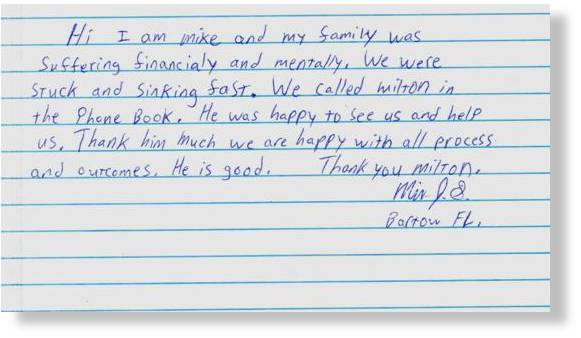 Hi I am mike and my family was
Suffering financialy and mentally. We were
Stuck and Sinking fast. We called milton in
the Phone Book. He was happy to see us and help
us. Thank him much we are happy with all process
and ourcomes. He is good. Thank you milton.
J.S.
Bartow FL.